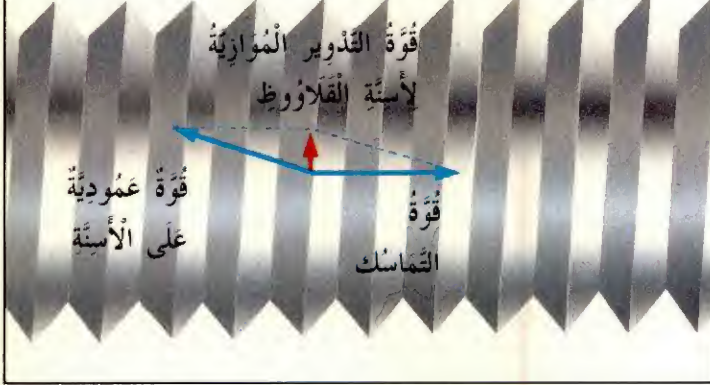 قُوَّةُ التَّدْوِيرِ الْمُوَازِيَّةُ
لِأَسِنَّةِ الْقَلَاوُوظِ
قُوَّةٌ عَمُودِيَّةٌ
عَلَى الْأَسِنَّةِ
قُوَّةُ
التَّمَاسُك